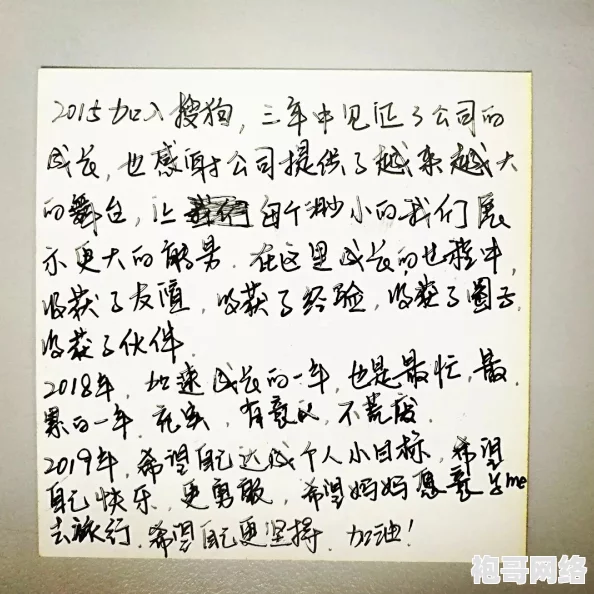 2015加入搜狗，三年中见证了公司的
成长，也感谢公司提供了越来越大
的舞台，让每个渺小的我们展
示更大的能量．在这里成长的过程中，
收获了友谊，收获了经验，收获了圈子，
收获了伙伴．
2018年，加速成长的一年，也是最忙，最
累的一年．充实，有意义，不荒废．
2019年，希望自己达成个人小目标，希望
自己快乐，更勇敢，希望妈妈愿意与me
去旅行．希望自己更坚持．加油！
袍哥网络